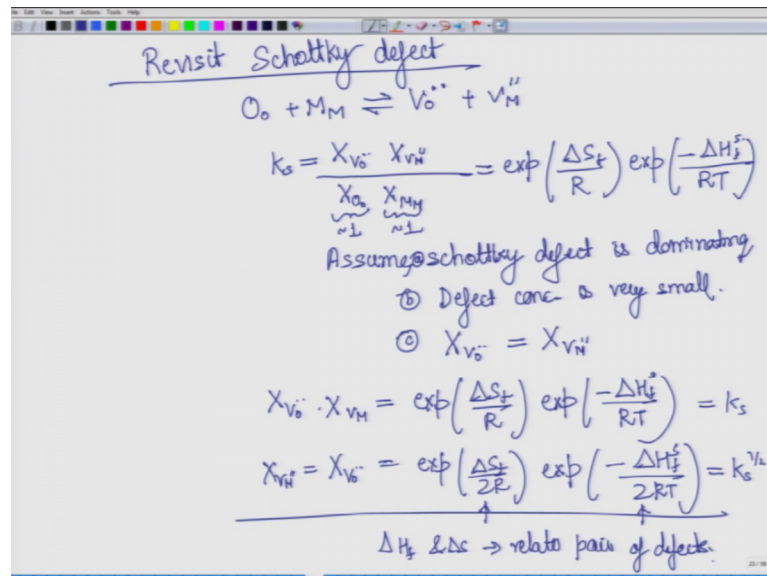 Edit View Insert Actions Tools Help
Revisit Schottky defect
Oₒ + M_M ⇌ Vₒ^•• + V_M^''
K_s = X_{Vₒ^••} X_{V_M^''} / X_{Oₒ} X_{M_M} = exp(ΔS_f / R) exp(-ΔH_f^s / RT)
~1 ~1
Assume, ⓐ schottky defect is dominating
ⓑ Defect conc is very small.
ⓒ X_{Vₒ^••} = X_{V_M^''}
X_{Vₒ^••} . X_{V_M} = exp(ΔS_f / R) exp(-ΔH_f^s / RT) = k_s
X_{V_M^''} = X_{Vₒ^••} = exp(ΔS_f / 2R) exp(-ΔH_f^s / 2RT) = k_s^{1/2}
ΔH_f & ΔS → relate pair of defects.